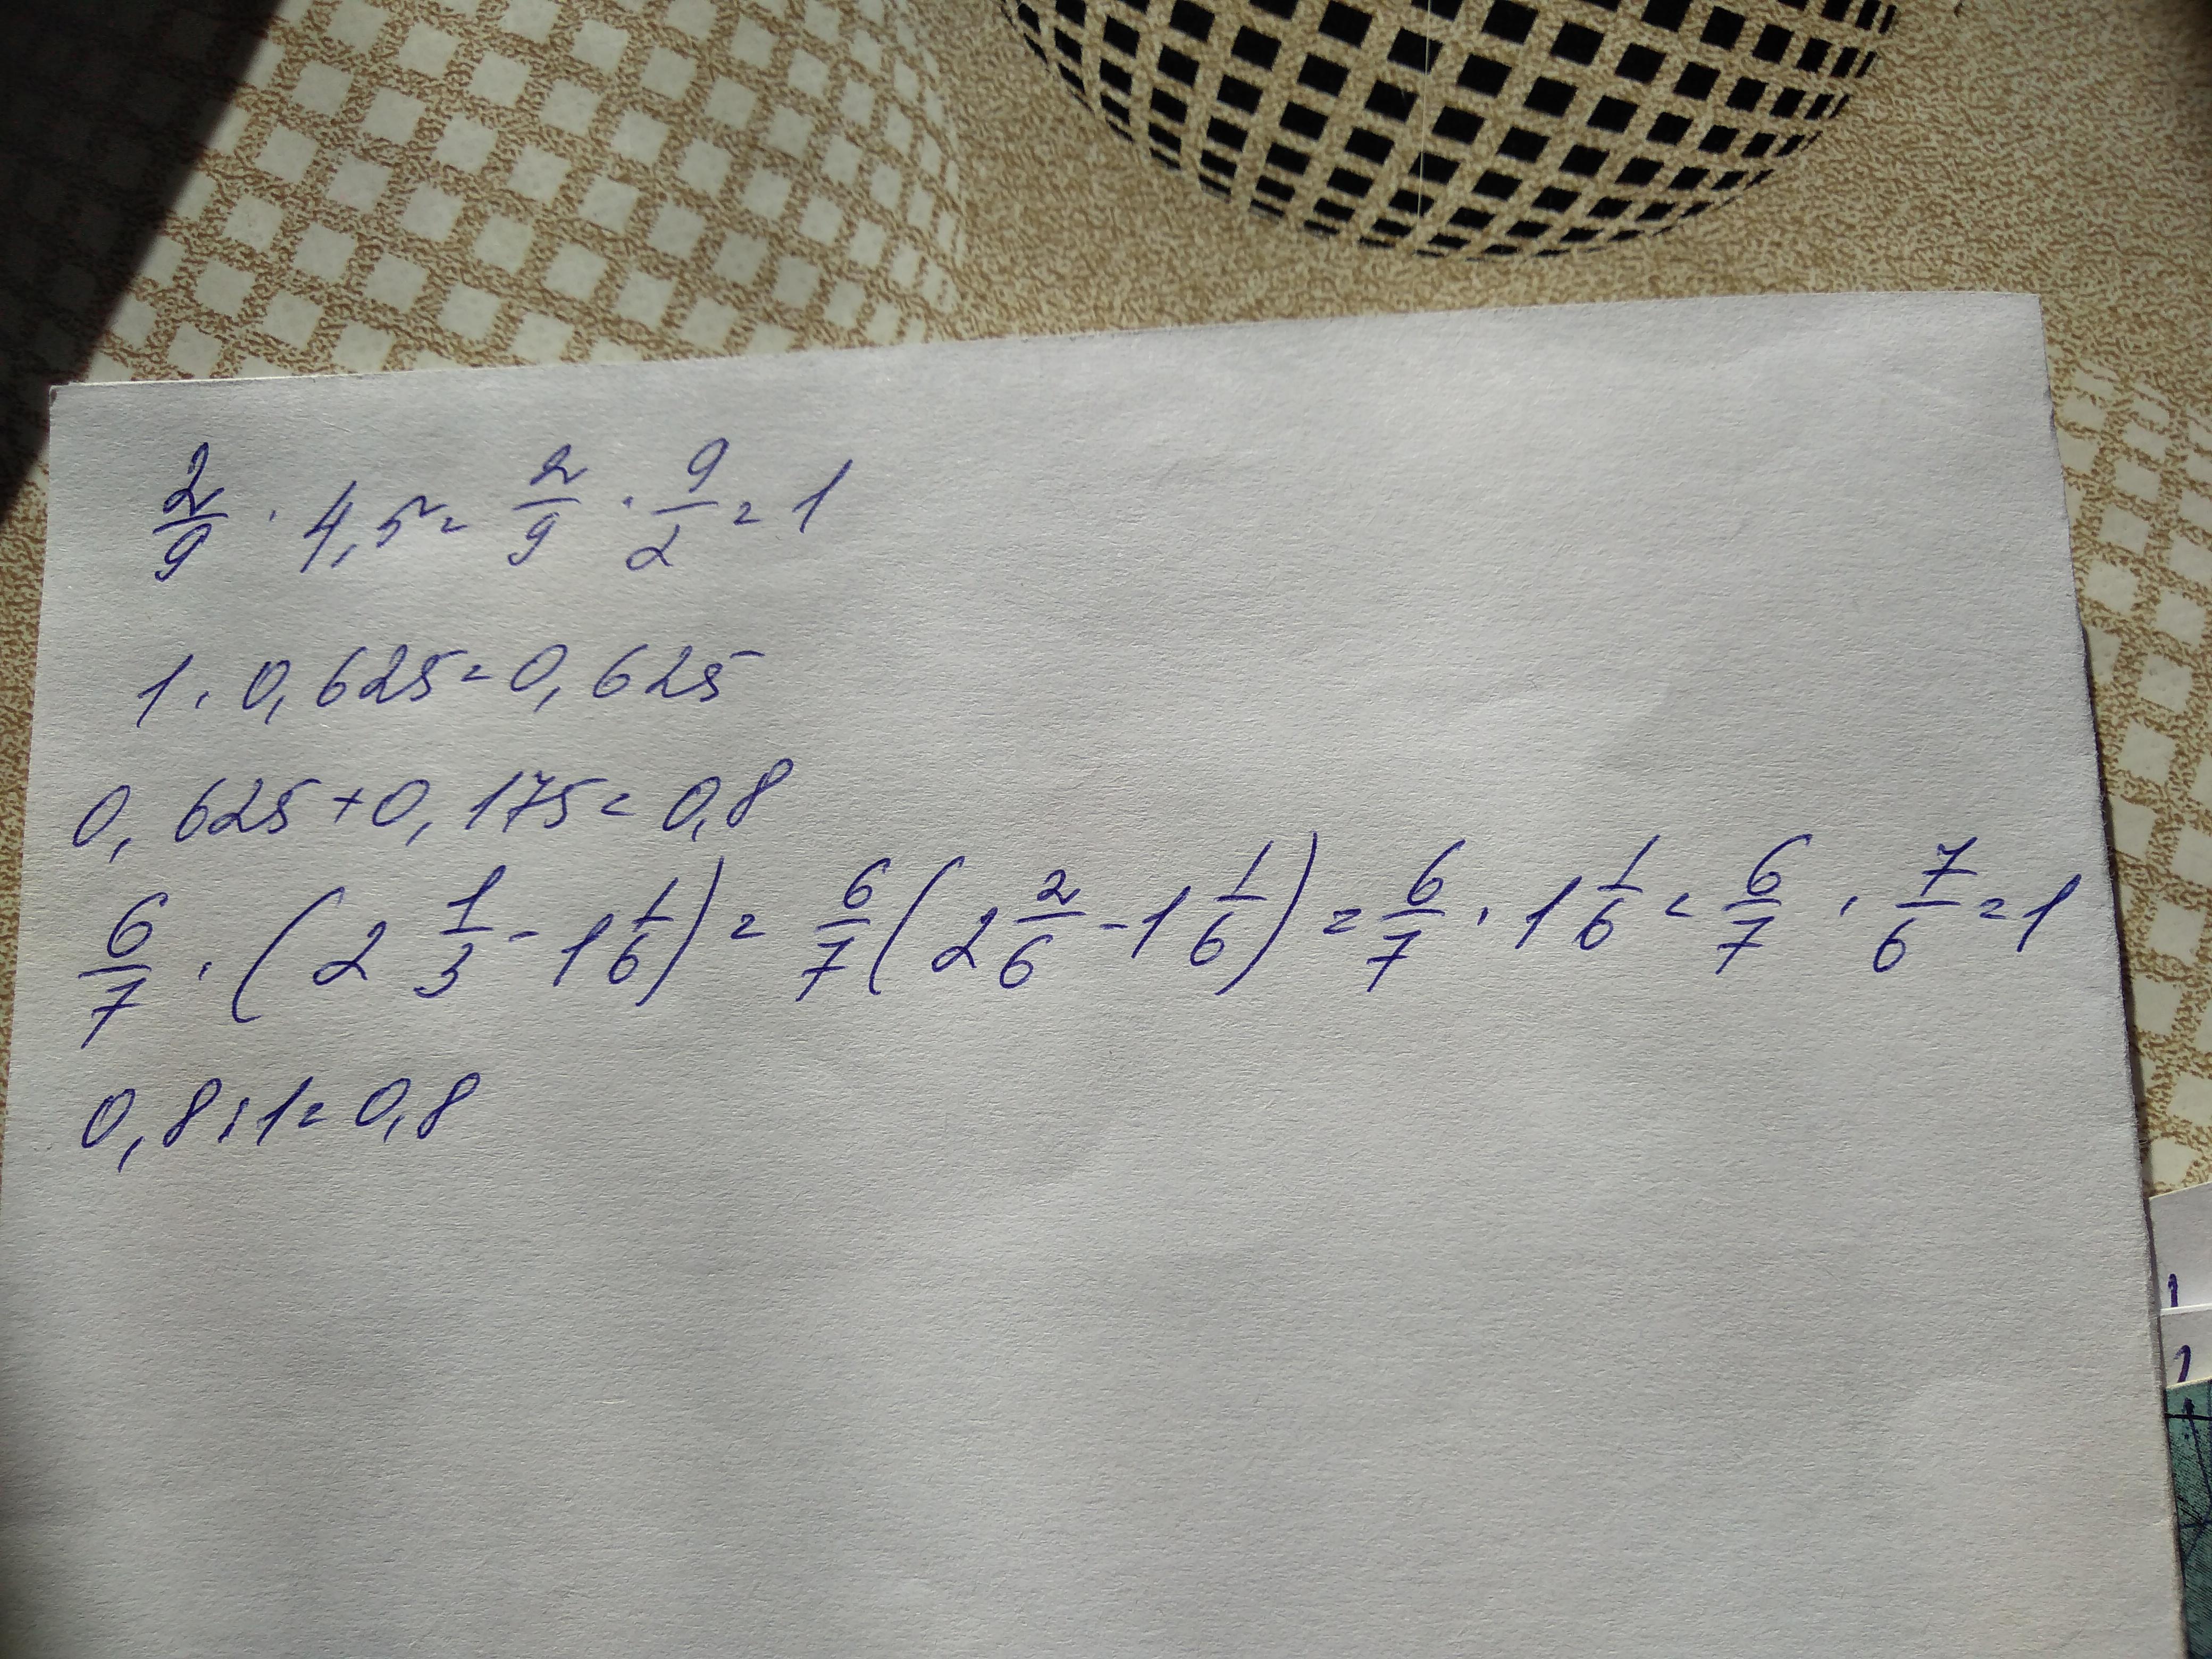 2/9 · 4,5 = 2/9 · 9/2 = 1
1 · 0,625 = 0,625
0,625 + 0,175 = 0,8
6/7 · (2 1/3 - 1 1/6) = 6/7 (2 2/6 - 1 1/6) = 6/7 · 1 1/6 = 6/7 · 7/6 = 1
0,8 : 1 = 0,8